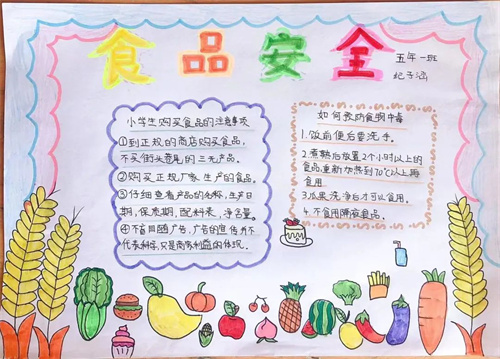 食品安全
五年一班
纪子涵
小学生购买食品的注意事项
①到正规的商店购买食品,
不买街头巷尾的三无产品。
②购买正规厂家生产的食品。
③仔细查看产品的名称,生产日
期,保质期,配料表,净含量。
④不盲目随广告,广告的宣传并不
代表科学,只是商家利益的体现。
如何预防食物中毒
1.饭前便后要洗手。
2.煮熟后放置2个小时以上的
食品,重新加热到70℃以上再
食用
3.瓜果洗净后才可以食用。
4.不食用隔夜食品。